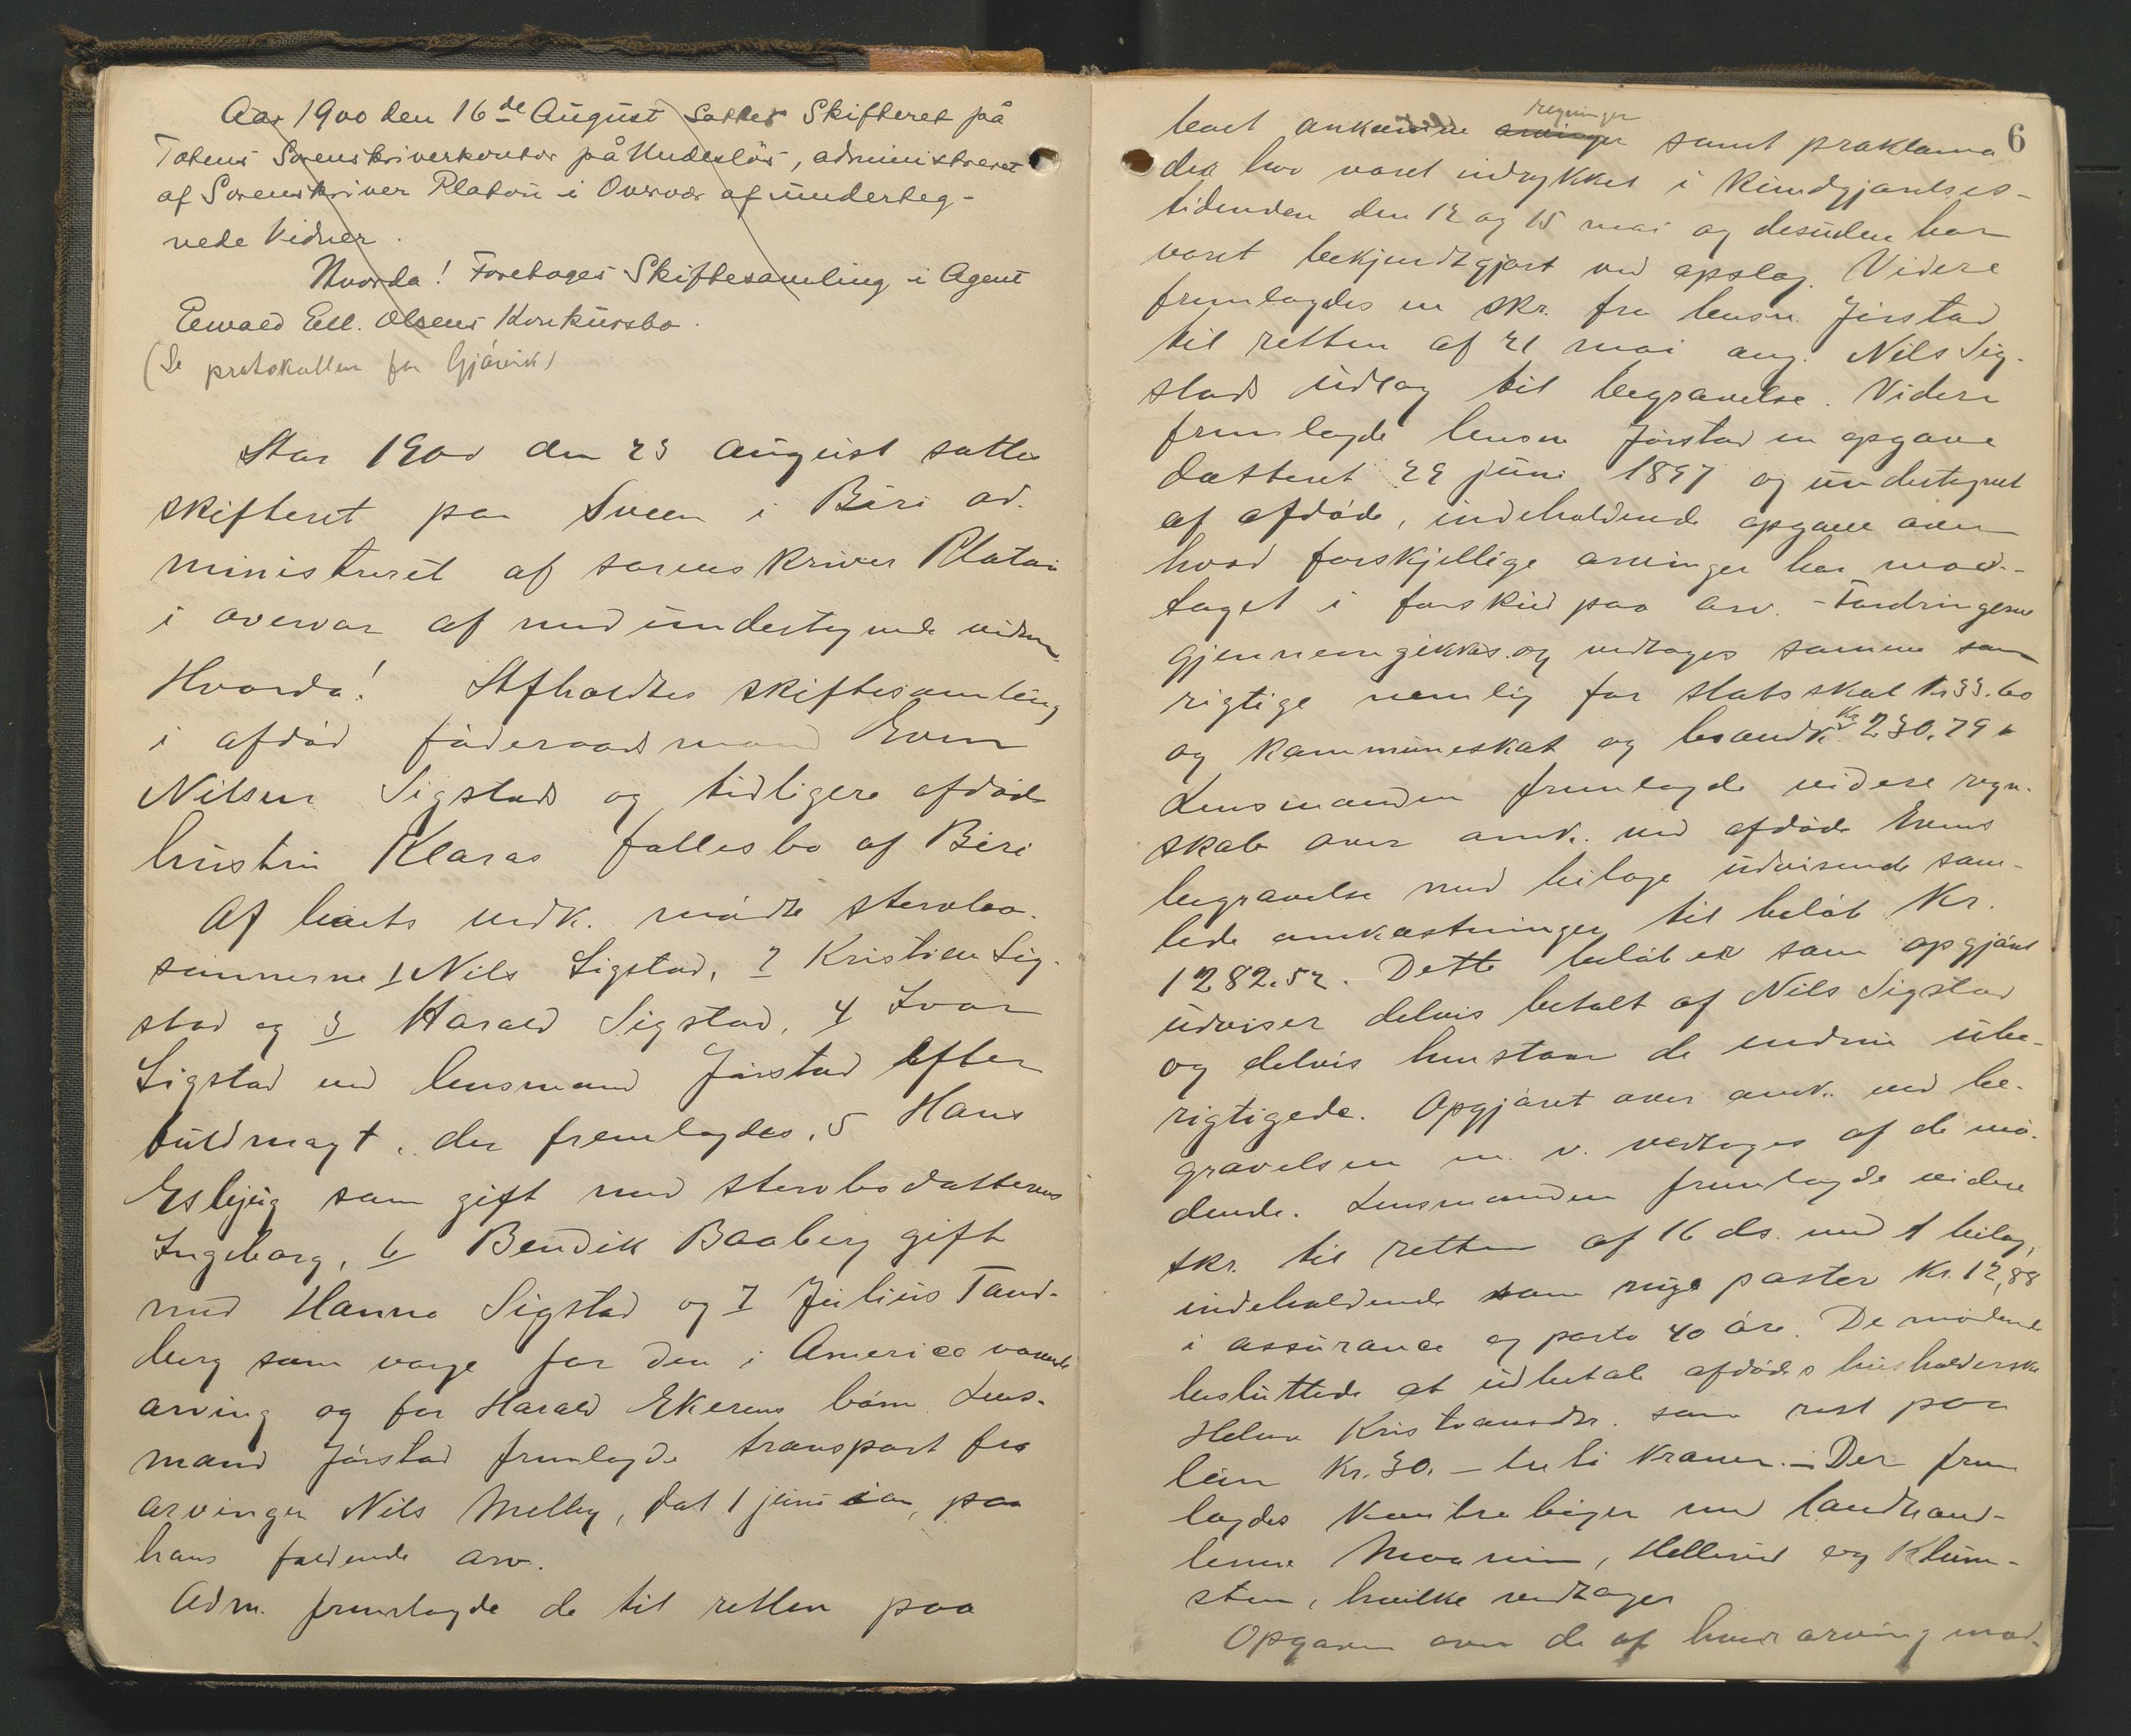 Aar 1900 den 16de August sattes Skifteret på
Totens Sorenskriverkontor på Hudesløs, administreret
af Sorenskriver Platou i Overvær af underteg-
nede Vidner.
Hvorda! Foretoges Skiftesamling i Agent
Eewald Ell. Olsens Konkursbo.
(Se protokollen for Gjøvik)
Aar 1900 den 23 august sattes
skifteret paa Sveen i Biri ad-
ministreret af sorenskriver Platou
i overvær af medundertegnede vidner.
Hvorda! Afholdtes skiftesamling
i afdød føderaadsmand Even
Nilsen Sigstads og tidligere afdøde
hustru Klaras fællesbo af Biri
Af boets vedk. mødte stervbo-
sønnerne 1 Nils Sigstad, 2 Kristian Sig-
stad og 3 Harald Sigstad, 4 Ivar
Sigstad ved lensmand Jørstad efter
fuldmagt, der fremlagdes, 5 Hans
Esbjug som gift med stervbodatteren
Ingeborg, 6 Bendik Baaberg gift
med Hanna Sigstad og 7 Julius Tand-
berg som værge for den i America værende
arving og for Harald Ekerens børn. Lens-
mand Jørstad fremlagde transport fra
arvingen Nils Melby, dat 1 juni ian, paa
hans faldende arv.
Adm. fremlagde de til retten paa
6
regninger
boet ankomne arvinger samt proklama
der har været indrykket i Kundgjørelses-
tidenden den 12 og 15 mai og desuden har
været bekjendtgjort ved opslag. Videre
fremlagdes en skr. fra lensm. Jørstad
til retten af 21 mai ang. Nils Sig-
stads udlæg til begravelse. Videre
fremlagde lensm Jørstad en opgave
datteret 29 juni 1897 og undertegnet
af afdøde, indeholdende opgave over
hvad forskjellige arvinger har mod-
taget i forskud paa arv. - Fordringerne
gjennemgikkes og vedtoges samme som
rigtige nemlig for statsskat kr 33.60
og kommuneskat og brandk. Kr 230.79
Lensmanden fremlagde videre regn-
skab over omk. ved afdøde Evens
begravelse med bilage udvisende sam-
lede omkostninger til beløb Kr.
1282.52. Dette beløb er som opgjøret
udviser delvis betalt af Nils Sigstad
og delvis henstaar de endnu ube-
rigtigede. Opgjøret over omk. ved be-
gravelsen m. v. vedtoges af de mø-
dende. Lensmanden fremlagde videre
skr. til retten af 16 ds. med 1 bilag,
indeholdende som nye poster kr. 12,88
i assurance og porto 40 øre. De mødende
besluttede at udbetale afdødes husholderske
Helene Kristiansdtr. som rest paa
løn Kr. 30. - treti kroner. - Der frem
lagdes kontrabøger med landhand-
lerne Moarnin, Hellerud og Klum-
sten, hvilke vedtoges
Opgaven over de af hver arving mod-